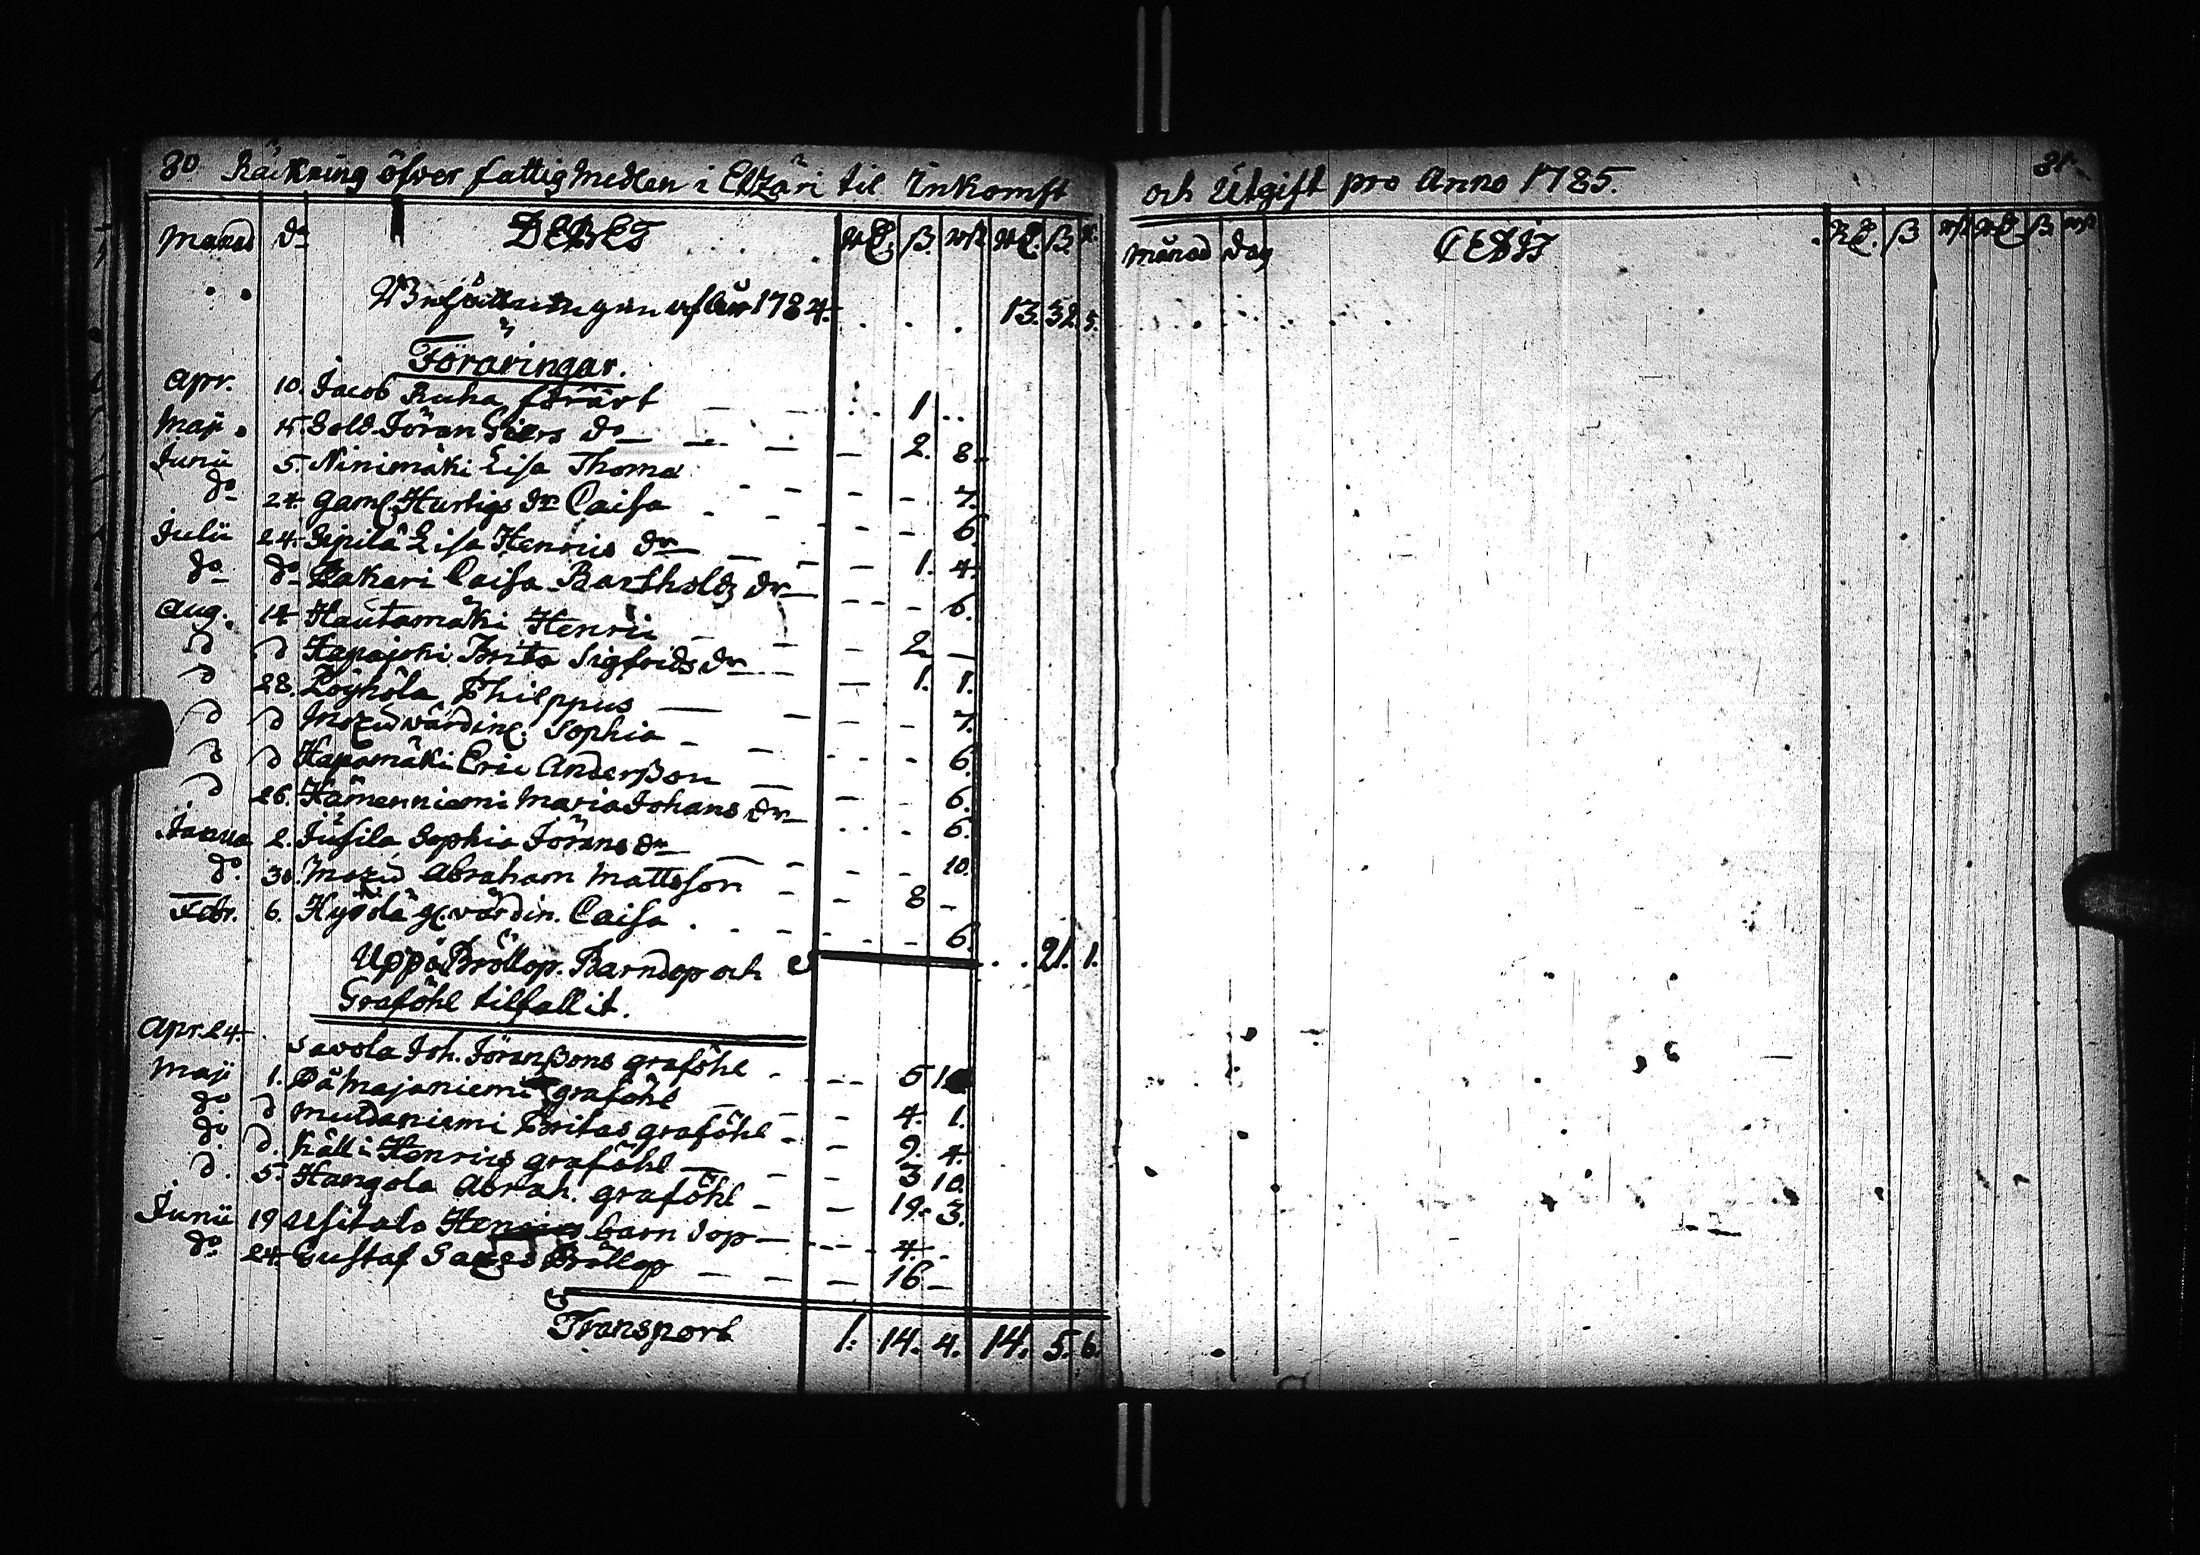 80 Räkning öfver fattig Medlen i Etzäri til Inkomst
Månad dn DEBET Rd. ß. rst Rd. ß. r.
Behållningen af år 1784. . . . 13. 32. 5.
Föräringar.
Apr. 10. Jacob Ruha förärt — — 1 ..
Maji 15 Sold. Jöran Giers do — — — 2. 8.
Junii 5. Ninimäki Lisa Thomæ - - - - 7.
do 24. gaml. Hurtigs dr Caisa . . - - 6.
Julii 24. Sipilä Lisa Henrics dr — — — 1. 4.
do do Zakari Caisa Bartholdz dr — - - 6.
Aug. 14 Hautamäki Henric — — — 2 —
D D Hapajoki Brita Sigfrids dr — — 1. 1.
D 28. Löyhölä Philppus — — - - 7.
D D värdin. Sophia - — - - 6.
D D Hapamäki Eric Anderßon — — - 6.
D 26. Hämenniemi Maria Johans dr — .. - 6.
Janua 2. Jusila Sophia Jörans dr — - - - 10.
do. 30. Abraham Mattsson — - 8 -
Febr. 6. Hyödlä gl. värdin. Caisa . - - - 6. . . 21. 1.
Uppå Bröllop. Barndop och
Graföhl tilfallit.
Apr. 24. Savola Joh. Jöranßons graföhl - - - 5 1.
Maji 1. Pämajaniemi graföhl — - - 4. 1.
do. D Muldaniemi Britas graföhl - - 9. 4.
do. D. Källi Henrics graföhl — - - 3 10.
D. 5. Hangola Abrah. graföhl - - 19. 3.
Junii 19 Henrics barn dop — - - 4. -
do 24. Gustaf Bröllop — — — 16. —
Transport 1. 14. 4. 14. 5. 6.
och Utgift pro Anno 1785. 81.
Månad Dag CREDIT Rd. ß rst Rd. ß. rst